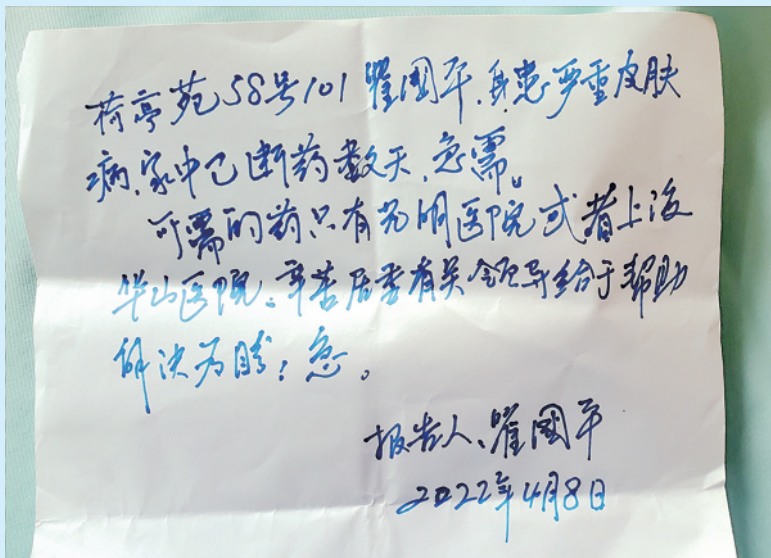 荷亭苑58号101瞿国平.身患严重皮肤
病.家中已断药数天.急需。
所需的药只有光明医院或者上海
华山医院。辛苦居委有关领导给于帮助
解决为盼!急。
报告人、瞿国平
2022年4月8日